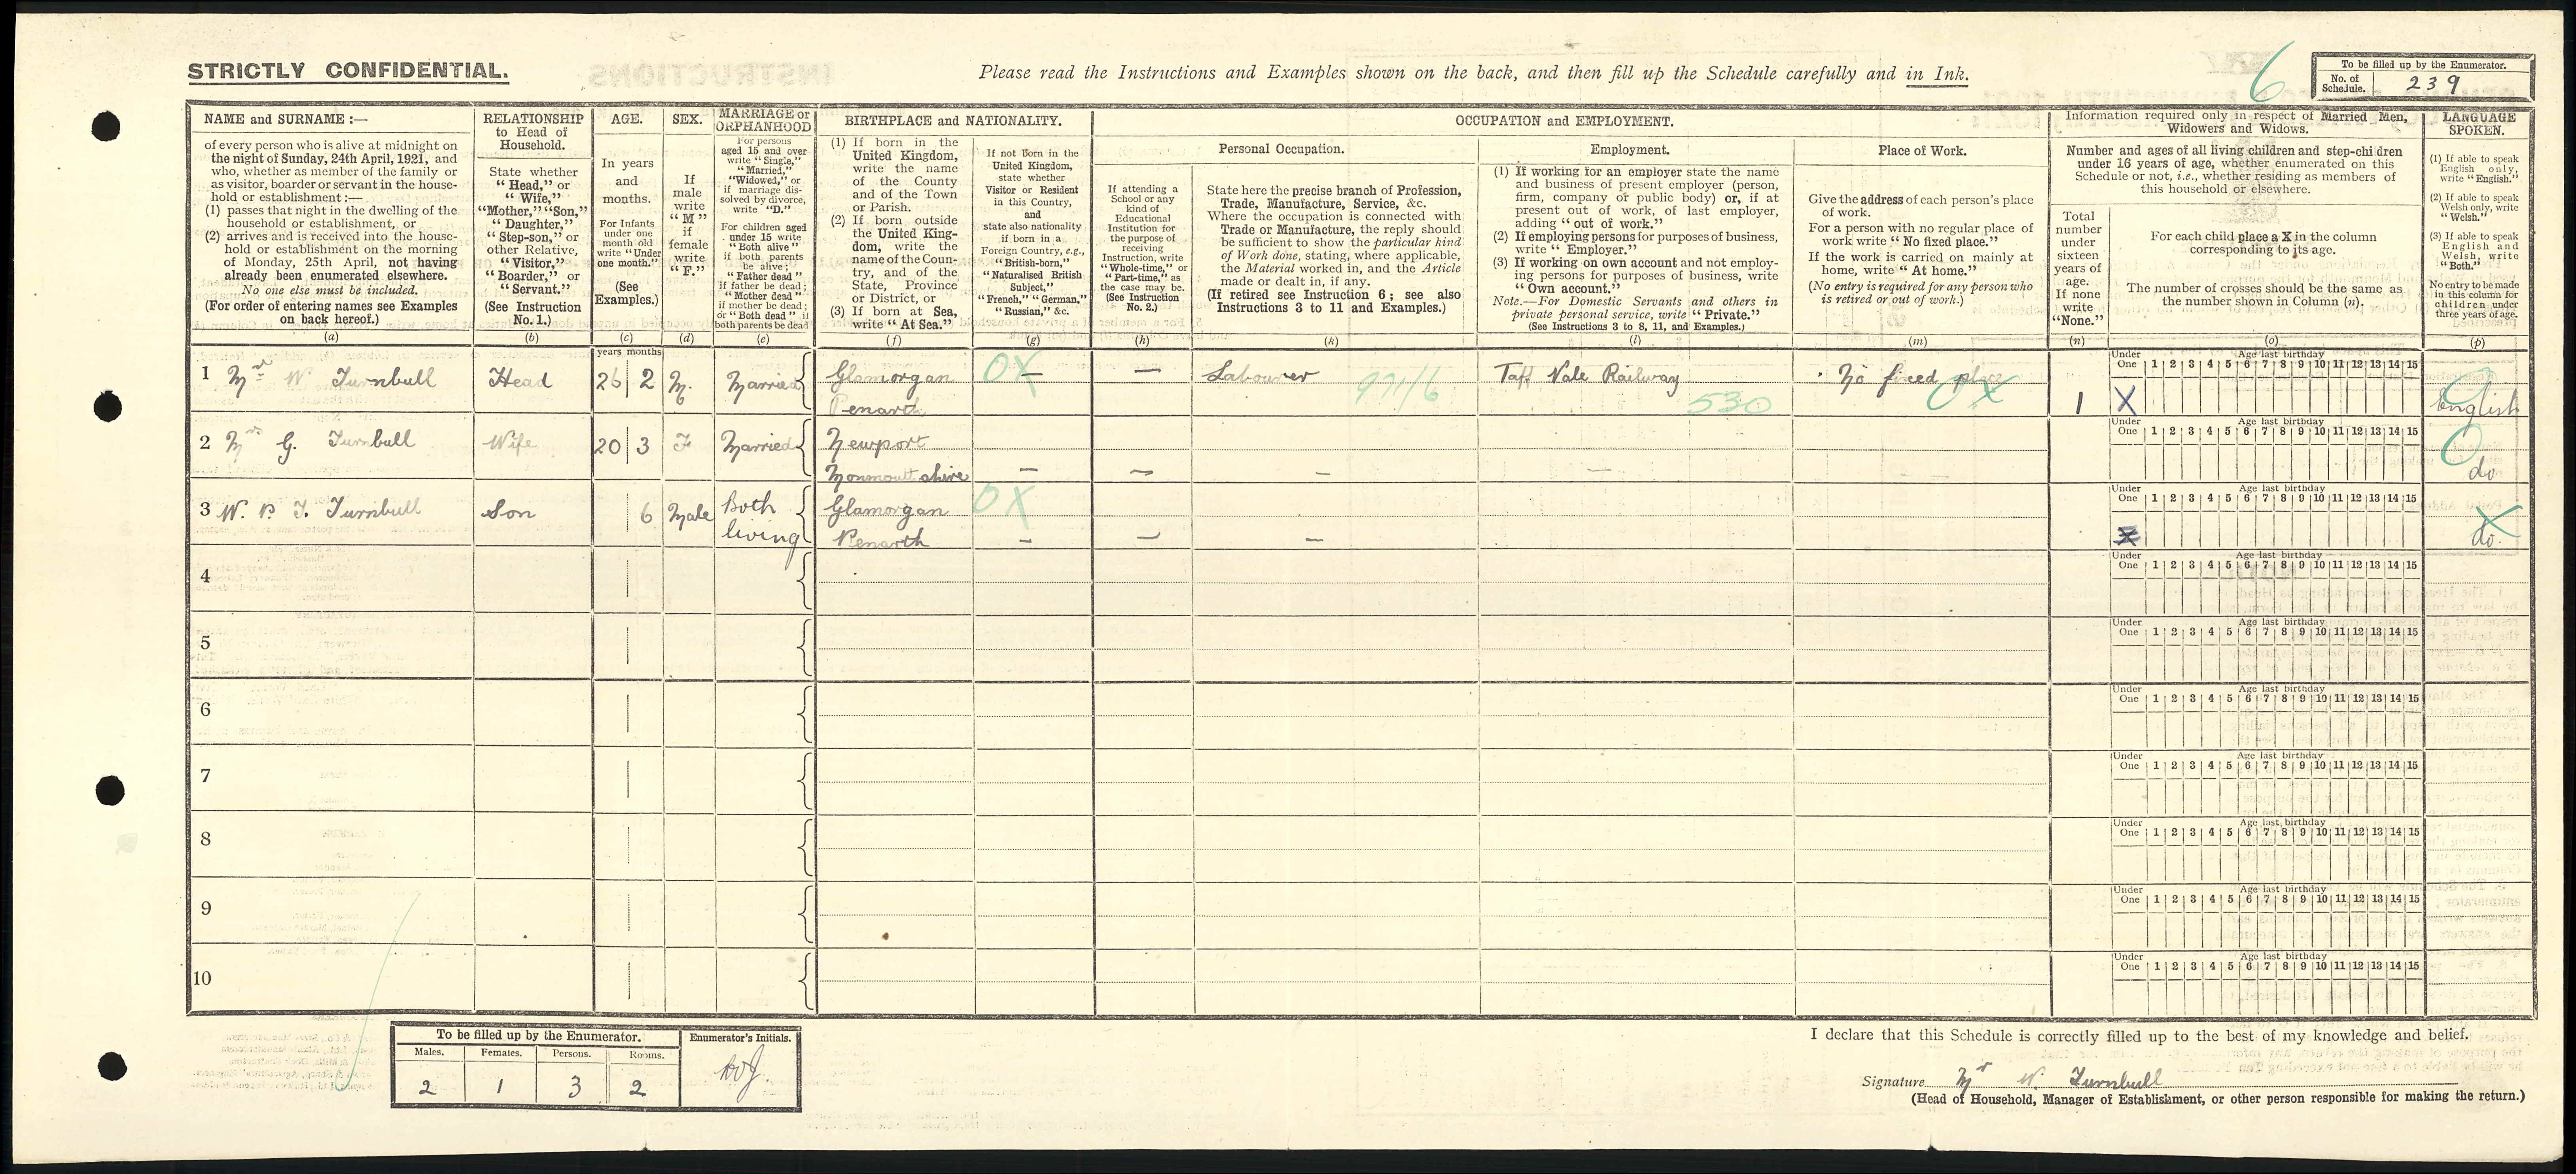 STRICTLY CONFIDENTIAL.
Please read the Instructions and Examples shown on the back, and then fill up the Schedule carefully and in Ink.
6
To be filled up by the Enumerator.
No. of Schedule. 239
NAME and SURNAME :—
of every person who is alive at midnight on
the night of Sunday, 24th April, 1921, and
who, whether as member of the family or
as visitor, boarder or servant in the house-
hold or establishment :—
(1) passes that night in the dwelling of the
household or establishment, or
(2) arrives and is received into the house-
hold or establishment on the morning
of Monday, 25th April, not having
already been enumerated elsewhere.
No one else must be included.
(For order of entering names see Examples
on back hereof.)
(a)
RELATIONSHIP
to Head of
Household.
State whether
"Head," or
"Wife,"
"Mother," "Son,"
"Daughter,"
"Step-son," or
other Relative,
"Visitor,"
"Boarder," or
"Servant."
(See Instruction
No. 1.)
(b)
AGE.
In years
and
months.
For Infants
under one
month old
write "Under
one month."
(See
Examples.)
(c)
SEX.
If
male
write
"M"
if
female
write
"F."
(d)
MARRIAGE or
ORPHANHOOD
For persons
aged 15 and over
write "Single,"
"Married,"
"Widowed," or
if marriage dis-
solved by divorce,
write "D."
For children aged
under 15 write
"Both alive"
if both parents
be alive;
"Father dead"
if father be dead;
"Mother dead"
if mother be dead;
or "Both dead" if
both parents be dead
(e)
BIRTHPLACE and NATIONALITY.
(1) If born in the
United Kingdom,
write the name
of the County
and of the Town
or Parish.
(2) If born outside
the United King-
dom, write the
name of the Coun-
try, and of the
State, Province
or District, or
(3) If born at Sea,
write "At Sea."
(f)
If not Born in the
United Kingdom,
state whether
Visitor or Resident
in this Country,
and
state also nationality
if born in a
Foreign Country, e.g.,
"British-born,"
"Naturalised British
Subject,"
"French," "German,"
"Russian," &c.
(g)
OCCUPATION and EMPLOYMENT.
Personal Occupation.
If attending a
School or any
kind of
Educational
Institution for
the purpose of
receiving
Instruction, write
"Whole-time," or
"Part-time," as
the case may be.
(See Instruction
No. 2.)
(h)
State here the precise branch of Profession,
Trade, Manufacture, Service, &c.
Where the occupation is connected with
Trade or Manufacture, the reply should
be sufficient to show the particular kind
of Work done, stating, where applicable,
the Material worked in, and the Article
made or dealt in, if any.
(If retired see Instruction 6; see also
Instructions 3 to 11 and Examples.)
(k)
Employment.
(1) If working for an employer state the name
and business of present employer (person,
firm, company or public body) or, if at
present out of work, of last employer,
adding "out of work."
(2) If employing persons for purposes of business,
write "Employer."
(3) If working on own account and not employ-
ing persons for purposes of business, write
"Own account."
Note.—For Domestic Servants and others in
private personal service, write "Private."
(See Instructions 3 to 8, 11, and Examples.)
(l)
Place of Work.
Give the address of each person's place
of work.
For a person with no regular place of
work write "No fixed place."
If the work is carried on mainly at
home, write "At home."
(No entry is required for any person who
is retired or out of work.)
(m)
Information required only in respect of Married Men,
Widowers and Widows.
Number and ages of all living children and step-children
under 16 years of age, whether enumerated on this
Schedule or not, i.e., whether residing as members of
this household or elsewhere.
Total
number
under
sixteen
years of
age.
If none
write
"None."
(n)
For each child place a X in the column
corresponding to its age.
The number of crosses should be the same as
the number shown in Column (n).
(o)
LANGUAGE
SPOKEN.
(1) If able to speak
English only,
write "English."
(2) If able to speak
Welsh only, write
"Welsh."
(3) If able to speak
English and
Welsh, write
"Both."
No entry to be made
in this column for
children under
three years of age.
(p)
years months
Under One Age last birthday 1 2 3 4 5 6 7 8 9 10 11 12 13 14 15
1 Mr W Turnbull Head 26 2 M. Married Glamorgan OX — — Labourer 971/6 Taff Vale Railway 530 No fixed place OX 1 X English
Penarth
Under One Age last birthday 1 2 3 4 5 6 7 8 9 10 11 12 13 14 15
2 Mrs G. Turnbull Wife 20 3 F Married Newport
Monmouthshire — — — — do
Under One Age last birthday 1 2 3 4 5 6 7 8 9 10 11 12 13 14 15
3 W. P. T. Turnbull Son 6 Male Both living Glamorgan OX
Penarth — — — X do.
Under One Age last birthday 1 2 3 4 5 6 7 8 9 10 11 12 13 14 15
4
Under One Age last birthday 1 2 3 4 5 6 7 8 9 10 11 12 13 14 15
5
Under One Age last birthday 1 2 3 4 5 6 7 8 9 10 11 12 13 14 15
6
Under One Age last birthday 1 2 3 4 5 6 7 8 9 10 11 12 13 14 15
7
Under One Age last birthday 1 2 3 4 5 6 7 8 9 10 11 12 13 14 15
8
Under One Age last birthday 1 2 3 4 5 6 7 8 9 10 11 12 13 14 15
9
Under One Age last birthday 1 2 3 4 5 6 7 8 9 10 11 12 13 14 15
10
To be filled up by the Enumerator.
Males. Females. Persons. Rooms.
2 1 3 2
Enumerator's Initials.
I declare that this Schedule is correctly filled up to the best of my knowledge and belief.
Signature Mr W. Turnbull
(Head of Household, Manager of Establishment, or other person responsible for making the return.)